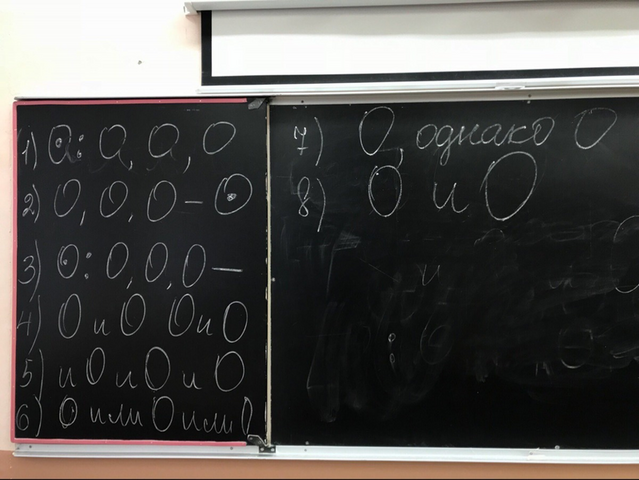 1) О: О, О, О
2) О, О, О – О
3) О: О, О, О –
4) О и О О и О
5) и О и О и О
6) О или О или О
7) О, однако О
8) О и О